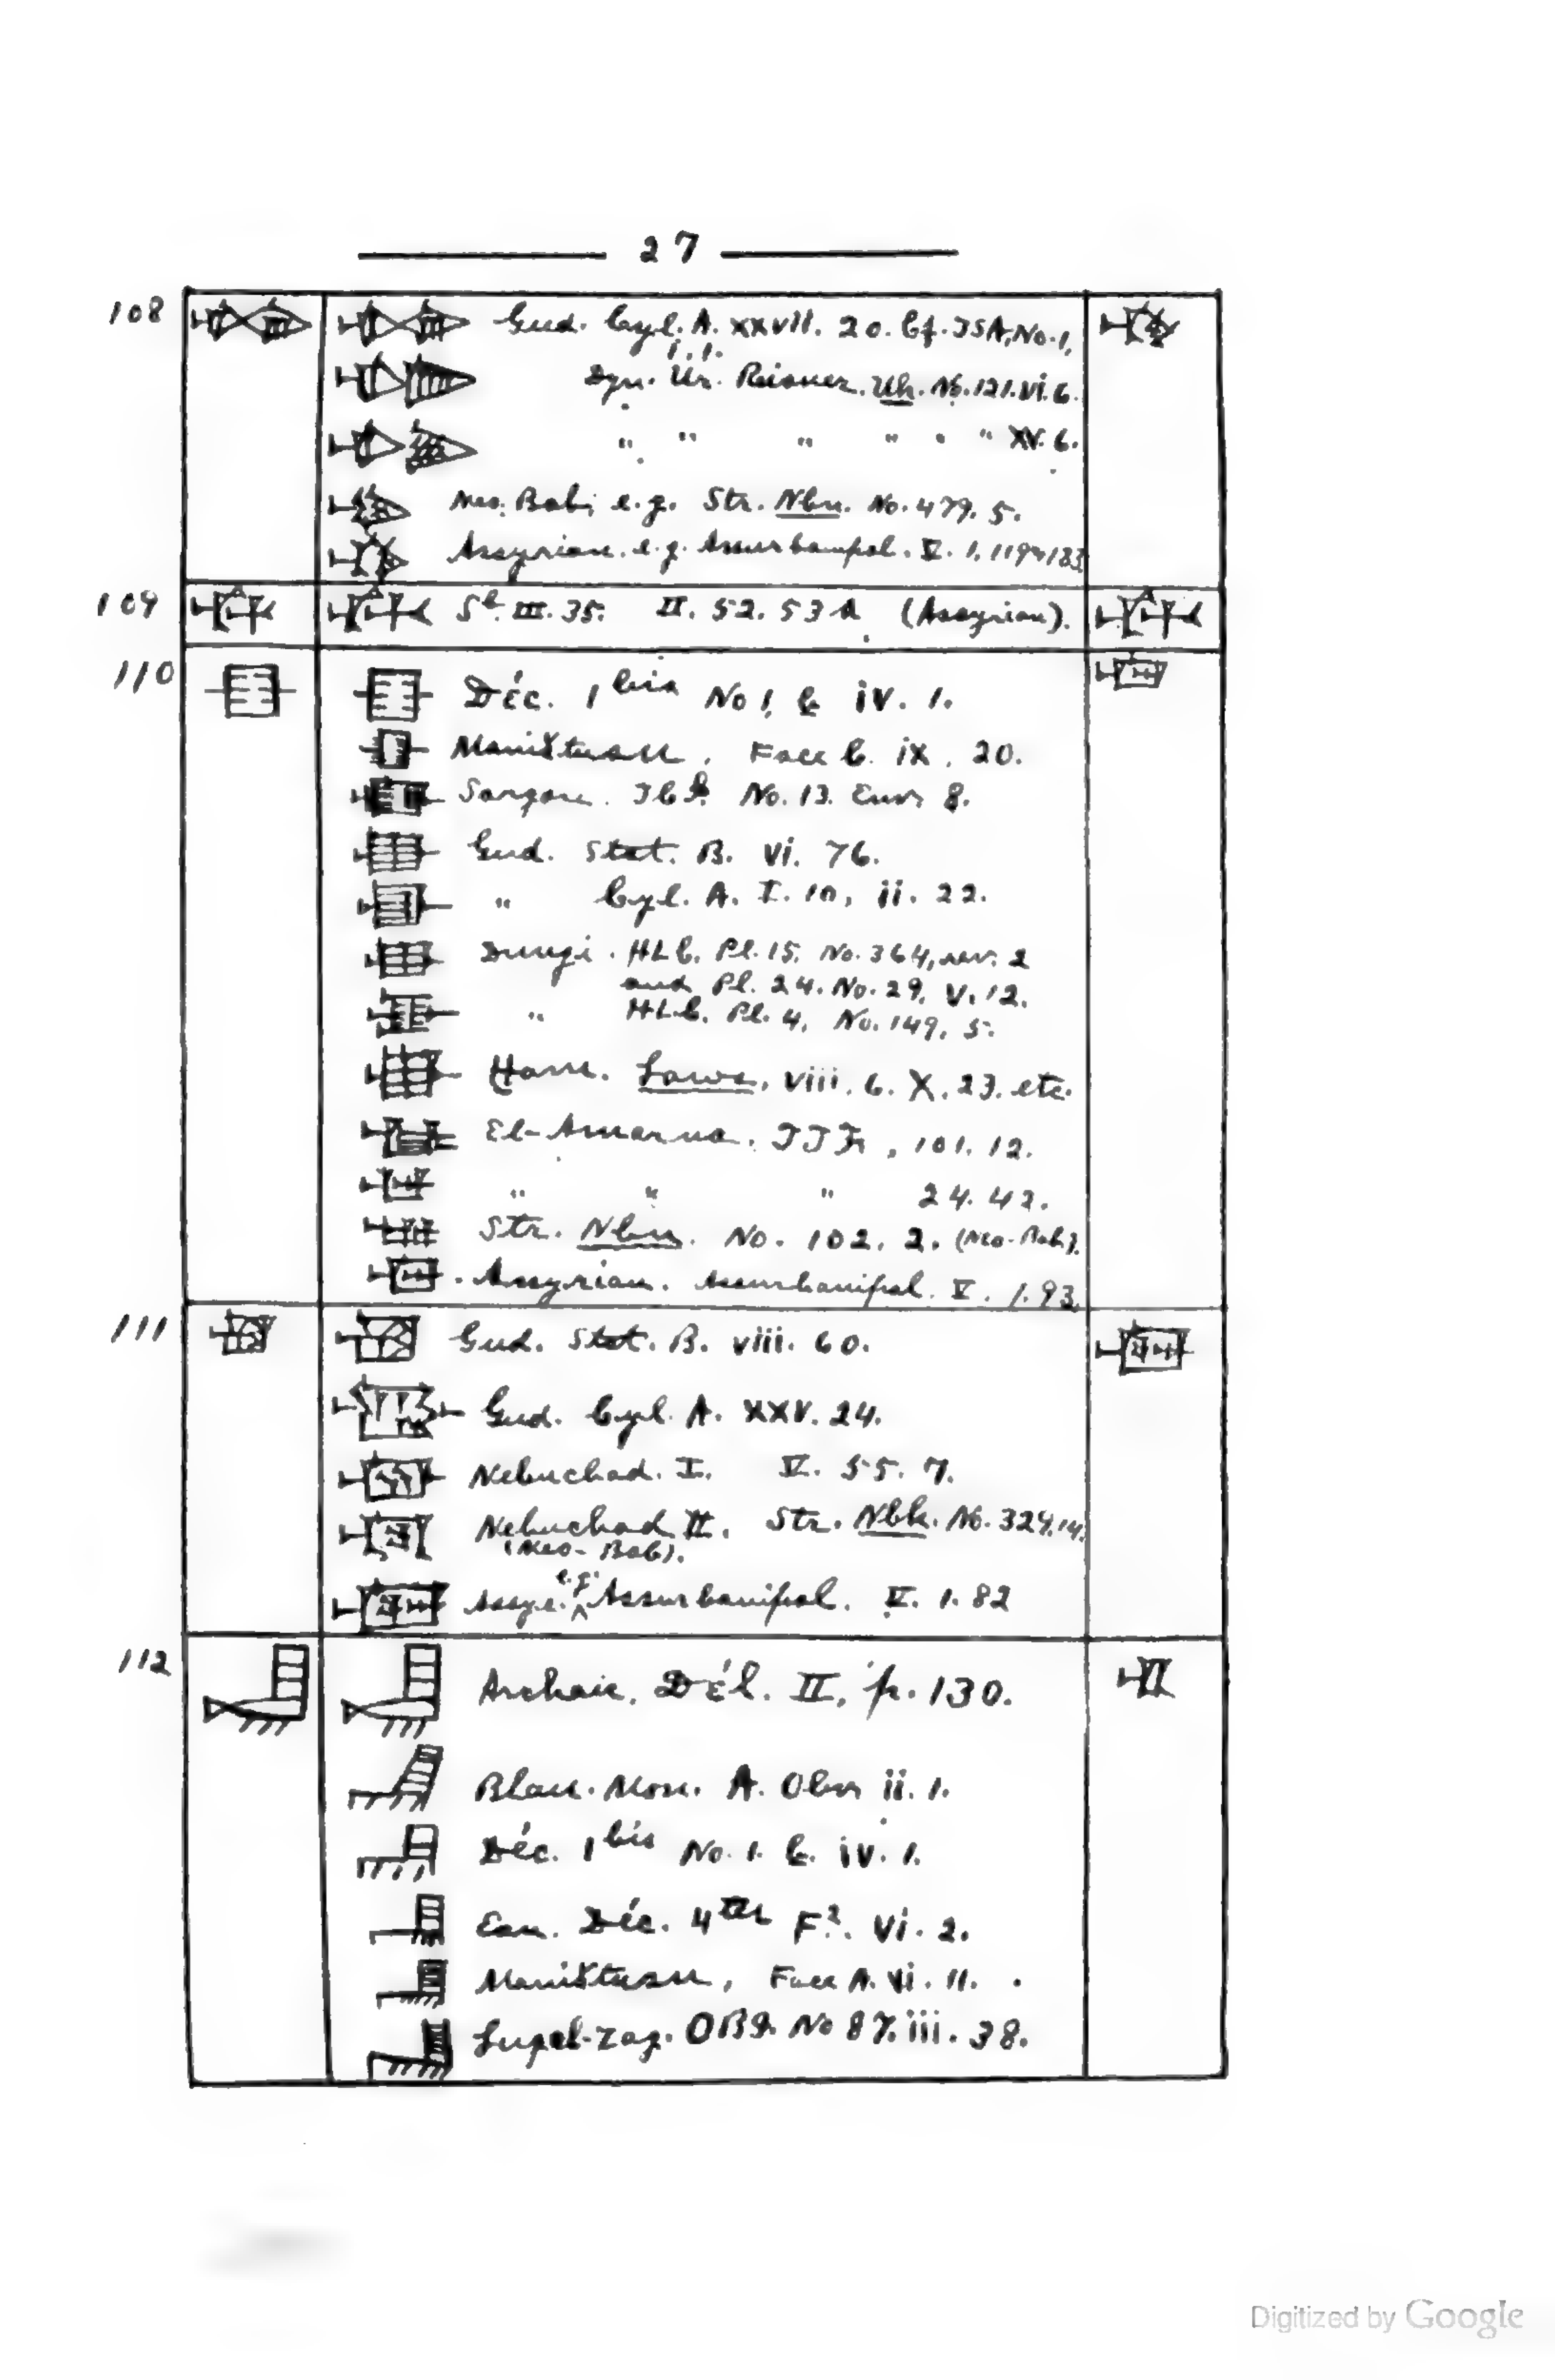 27
108 Gud. Cyl. A. XXVII. 20. Cf. ISA, No. 1,
i. 1.
Dyn. Ur. Reisner. Uh. No. 121. vi. 6.
" " " " " " XV. 6.
Neo. Bab; e.g. Str. Nbn. No. 479. 5.
Assyrian. e.g. Assurbanipal. V. 1. 119
109 Sb. III. 35. II. 52. 53 a (Assyrian).
110 Déc. 1 bis No 1, b iv. 1.
Maništusu, Face C. ix. 20.
Sargon. No. 13. 8.
Gud. Stat. B. vi. 76.
" Cyl. A. I. 10, ii. 22.
Dungi. HLC. Pl. 15. No. 364, rev. 2
and Pl. 24. No. 29. V. 12.
" HLC. Pl. 4, No. 149. 5.
Ham. Laws, viii. 6. X. 23. etc.
El-Amarna. 101. 12.
" " " 24. 42.
Str. Nbn. No. 102. 2. (Neo-Bab).
Assyrian. Assurbanipal. V. 1. 93.
111 Gud. Stat. B. viii. 60.
Gud. Cyl. A. XXV. 24.
Nebuchad. I. V. 55. 7.
Nebuchad II. Str. Nbk. No. 324. 14.
(Neo-Bab).
Assyr. e.g. Assurbanipal. V. 1. 82
112 Archaic. Dél. II, p. 130.
Blau. Mon. A. Obv ii. 1.
Déc. 1 bis No. 1. b. iv. 1.
Ean. Déc. 4 ter F². vi. 2.
Maništusu, Face A. vi. 11.
Lugal-zag. OBI. No 87. iii. 38.
Digitized by Google